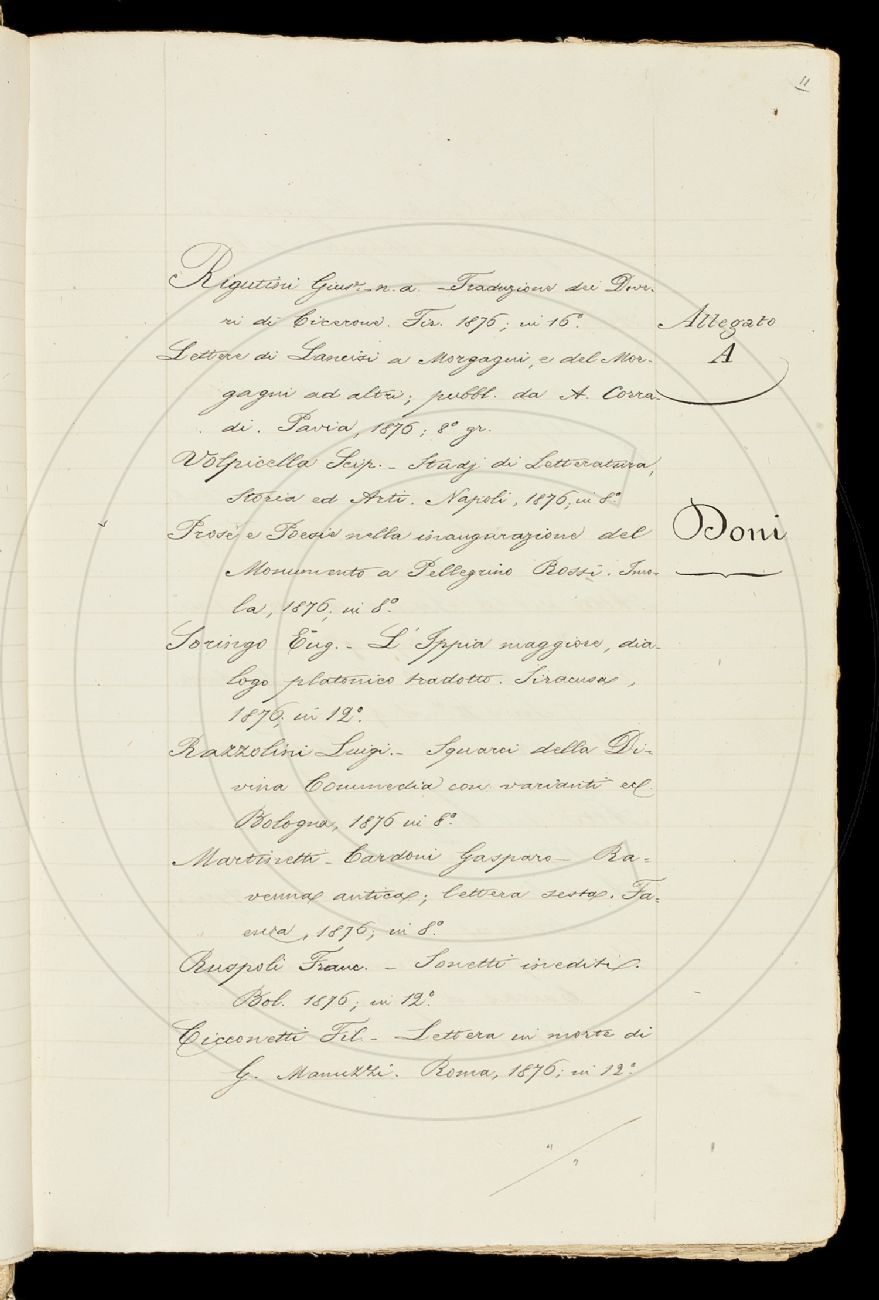 11
Rigutini Gius.e n. a. - Traduzione dei Dove-
ri di Cicerone. Fir. 1876; in 16°.
Allegato
A
Lettere di Lancisi a Morgagni, e del Mor-
gagni ad altri; pubbl. da A. Corra-
di. Pavia, 1876; 8° gr.
Volpicella Scip. - Studj di Letteratura,
Storia ed Arti. Napoli, 1876; in 8°.
Doni
Prose e Poesie nella inaugurazione del
Monumento a Pellegrino Rossi. Imo-
la, 1876; in 8°.
Soringo Eug. - L'Ippia maggiore, dia-
logo platonico tradotto. Siracusa,
1876; in 12°.
Razzolini Luigi. - Squarci della Di-
vina Commedia con varianti ec.
Bologna, 1876 in 8°.
Martinetti - Cardoni Gasparo - Ra-
venna antica; lettera sesta. Fa-
enza, 1876; in 8°.
Ruspoli Franc. - Sonetti inediti.
Bol. 1876; in 12°.
Cicconetti Fil. - Lettera in morte di
G. Manuzzi. Roma, 1876; in 12°.